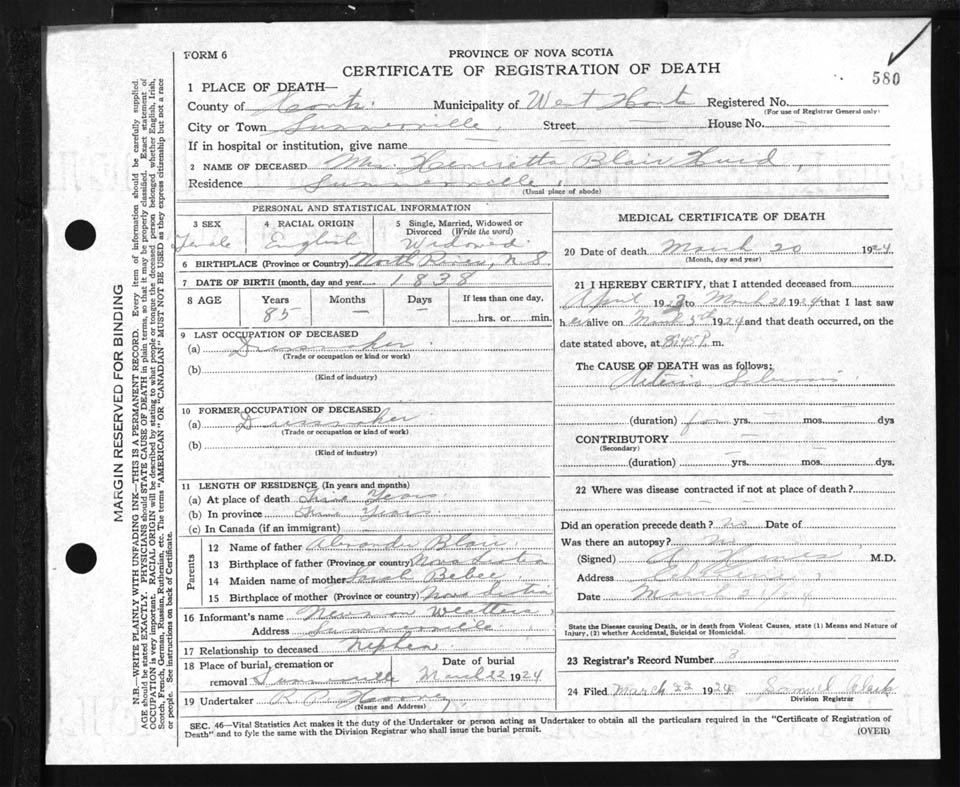 FORM 6
PROVINCE OF NOVA SCOTIA
CERTIFICATE OF REGISTRATION OF DEATH
580
1 PLACE OF DEATH—
County of Hants. Municipality of West Hants Registered No.
(For use of Registrar General only)
City or Town Summerville, Street — House No. —
If in hospital or institution, give name —
2 NAME OF DECEASED Mrs. Henrietta Blair,
Residence Summerville,
(Usual place of abode)
PERSONAL AND STATISTICAL INFORMATION
3 SEX
Female
4 RACIAL ORIGIN
English
5 Single, Married, Widowed or Divorced (Write the word)
Widowed.
6 BIRTHPLACE (Province or Country) North River, N.S.
7 DATE OF BIRTH (month, day and year) 1838
8 AGE Years Months Days If less than one day,
85 — — hrs. or min.
9 LAST OCCUPATION OF DECEASED
(a) Dressmaker.
(Trade or occupation or kind or work)
(b)
(Kind of industry)
10 FORMER OCCUPATION OF DECEASED
(a) Dressmaker.
(Trade or occupation or kind of work)
(b)
(Kind of industry)
11 LENGTH OF RESIDENCE (In years and months)
(a) At place of death Years.
(b) In province Years.
(c) In Canada (if an immigrant)
Parents
12 Name of father Alexander Blair.
13 Birthplace of father (Province or country) Nova Scotia
14 Maiden name of mother Sarah Bebee.
15 Birthplace of mother (Province or country) Nova Scotia
16 Informant's name Newman
Address Summerville
17 Relationship to deceased nephew
18 Place of burial, cremation or removal Summerville Date of burial March 22 1924
19 Undertaker R. P.
(Name and Address)
MEDICAL CERTIFICATE OF DEATH
20 Date of death March 20 1924
(Month, day and year)
21 I HEREBY CERTIFY, that I attended deceased from
April 1923 to March 20 1924 that I last saw
her alive on March 5th 1924 and that death occurred, on the
date stated above, at 8.45 P. m.
The CAUSE OF DEATH was as follows:
Arterio Sclerosis
(duration) yrs. — mos. — dys
CONTRIBUTORY —
(Secondary)
(duration) — yrs. — mos. — dys.
22 Where was disease contracted if not at place of death?
—
Did an operation precede death? no Date of
Was there an autopsy? no
(Signed) M.D.
Address
Date March 21/24
State the Disease causing Death, or in death from Violent Causes, state (1) Means and Nature of Injury, (2) whether Accidental, Suicidal or Homicidal.
23 Registrar's Record Number 3
24 Filed March 22 1924 Samuel Clark
Division Registrar
SEC. 46—Vital Statistics Act makes it the duty of the Undertaker or person acting as Undertaker to obtain all the particulars required in the "Certificate of Registration of
Death" and to fyle the same with the Division Registrar who shall issue the burial permit.
(OVER)
MARGIN RESERVED FOR BINDING
N.B.—WRITE PLAINLY WITH UNFADING INK—THIS IS A PERMANENT RECORD. Every item of information should be carefully supplied.
AGE should be stated EXACTLY. PHYSICIANS should STATE CAUSE OF DEATH in plain terms, so that it may be properly classified. Exact statement of
OCCUPATION is very important. RACIAL ORIGIN will be described by stating to what people or tongue the deceased person belonged whether English, Irish,
Scotch, French, German, Russian, Ruthenian, etc. The terms "AMERICAN" OR "CANADIAN" MUST NOT BE USED as they express citizenship but not a race
or people. See instructions on back of Certificate.